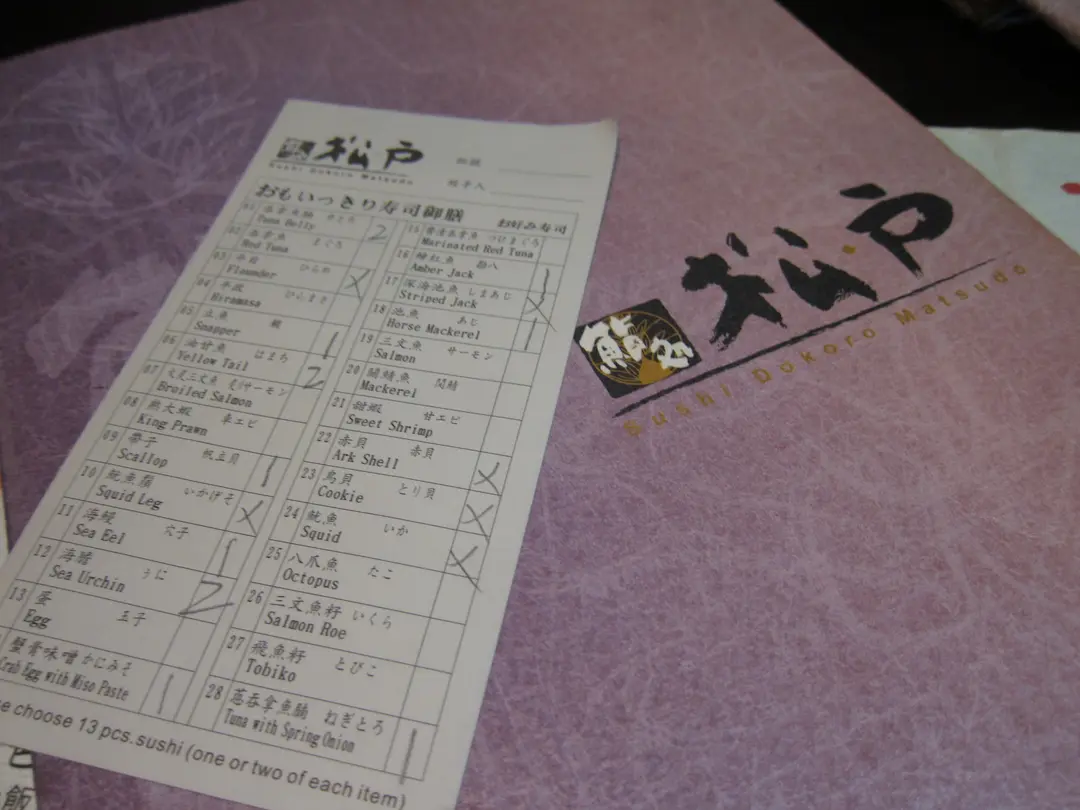 松戸
Sushi Dokoro Matsudo
おもいっきり寿司御膳 お好み寿司
01 吞拿魚腩 とろ 2
Tuna Belly
02 吞拿魚 まぐろ
Red Tuna
03 平目 ひらめ X
Flounder
04 平政 ひらまさ
Hiramasa
05 立魚 鯛 1
Snapper
06 油甘魚 はまち 2
Yellow Tail
07 火炙三文魚 炙サーモン
Broiled Salmon
08 熟大蝦 車エビ
King Prawn
09 帶子 帆立貝 1
Scallop
10 魷魚鬚 いかげそ X
Squid Leg
11 海鰻 穴子 1
Sea Eel
12 海膽 うに 2
Sea Urchin
13 蛋 玉子
Egg
蟹膏味噌 かにみそ 1
Crab Egg with Miso Paste
15 つけまぐろ
Marinated Red Tuna
16 間八 1
Amber Jack
17 深海池魚 しまあじ X
Striped Jack
18 池魚 あじ 1
Horse Mackerel
19 三文魚 サーモン
Salmon
20 關鯖魚 関鯖
Mackerel
21 甜蝦 甘エビ
Sweet Shrimp
22 赤貝 赤貝 X
Ark Shell
23 鳥貝 とり貝 X
Cookie
24 魷魚 いか X
Squid
25 八爪魚 たこ
Octopus
26 三文魚籽 いくら
Salmon Roe
27 飛魚籽 とびこ
Tobiko
28 葱吞拿魚腩 ねぎとろ 1
Tuna with Spring Onion
choose 13 pcs.sushi (one or two of each item)
鮨処 松戸
Sushi Dokoro Matsudo
飯